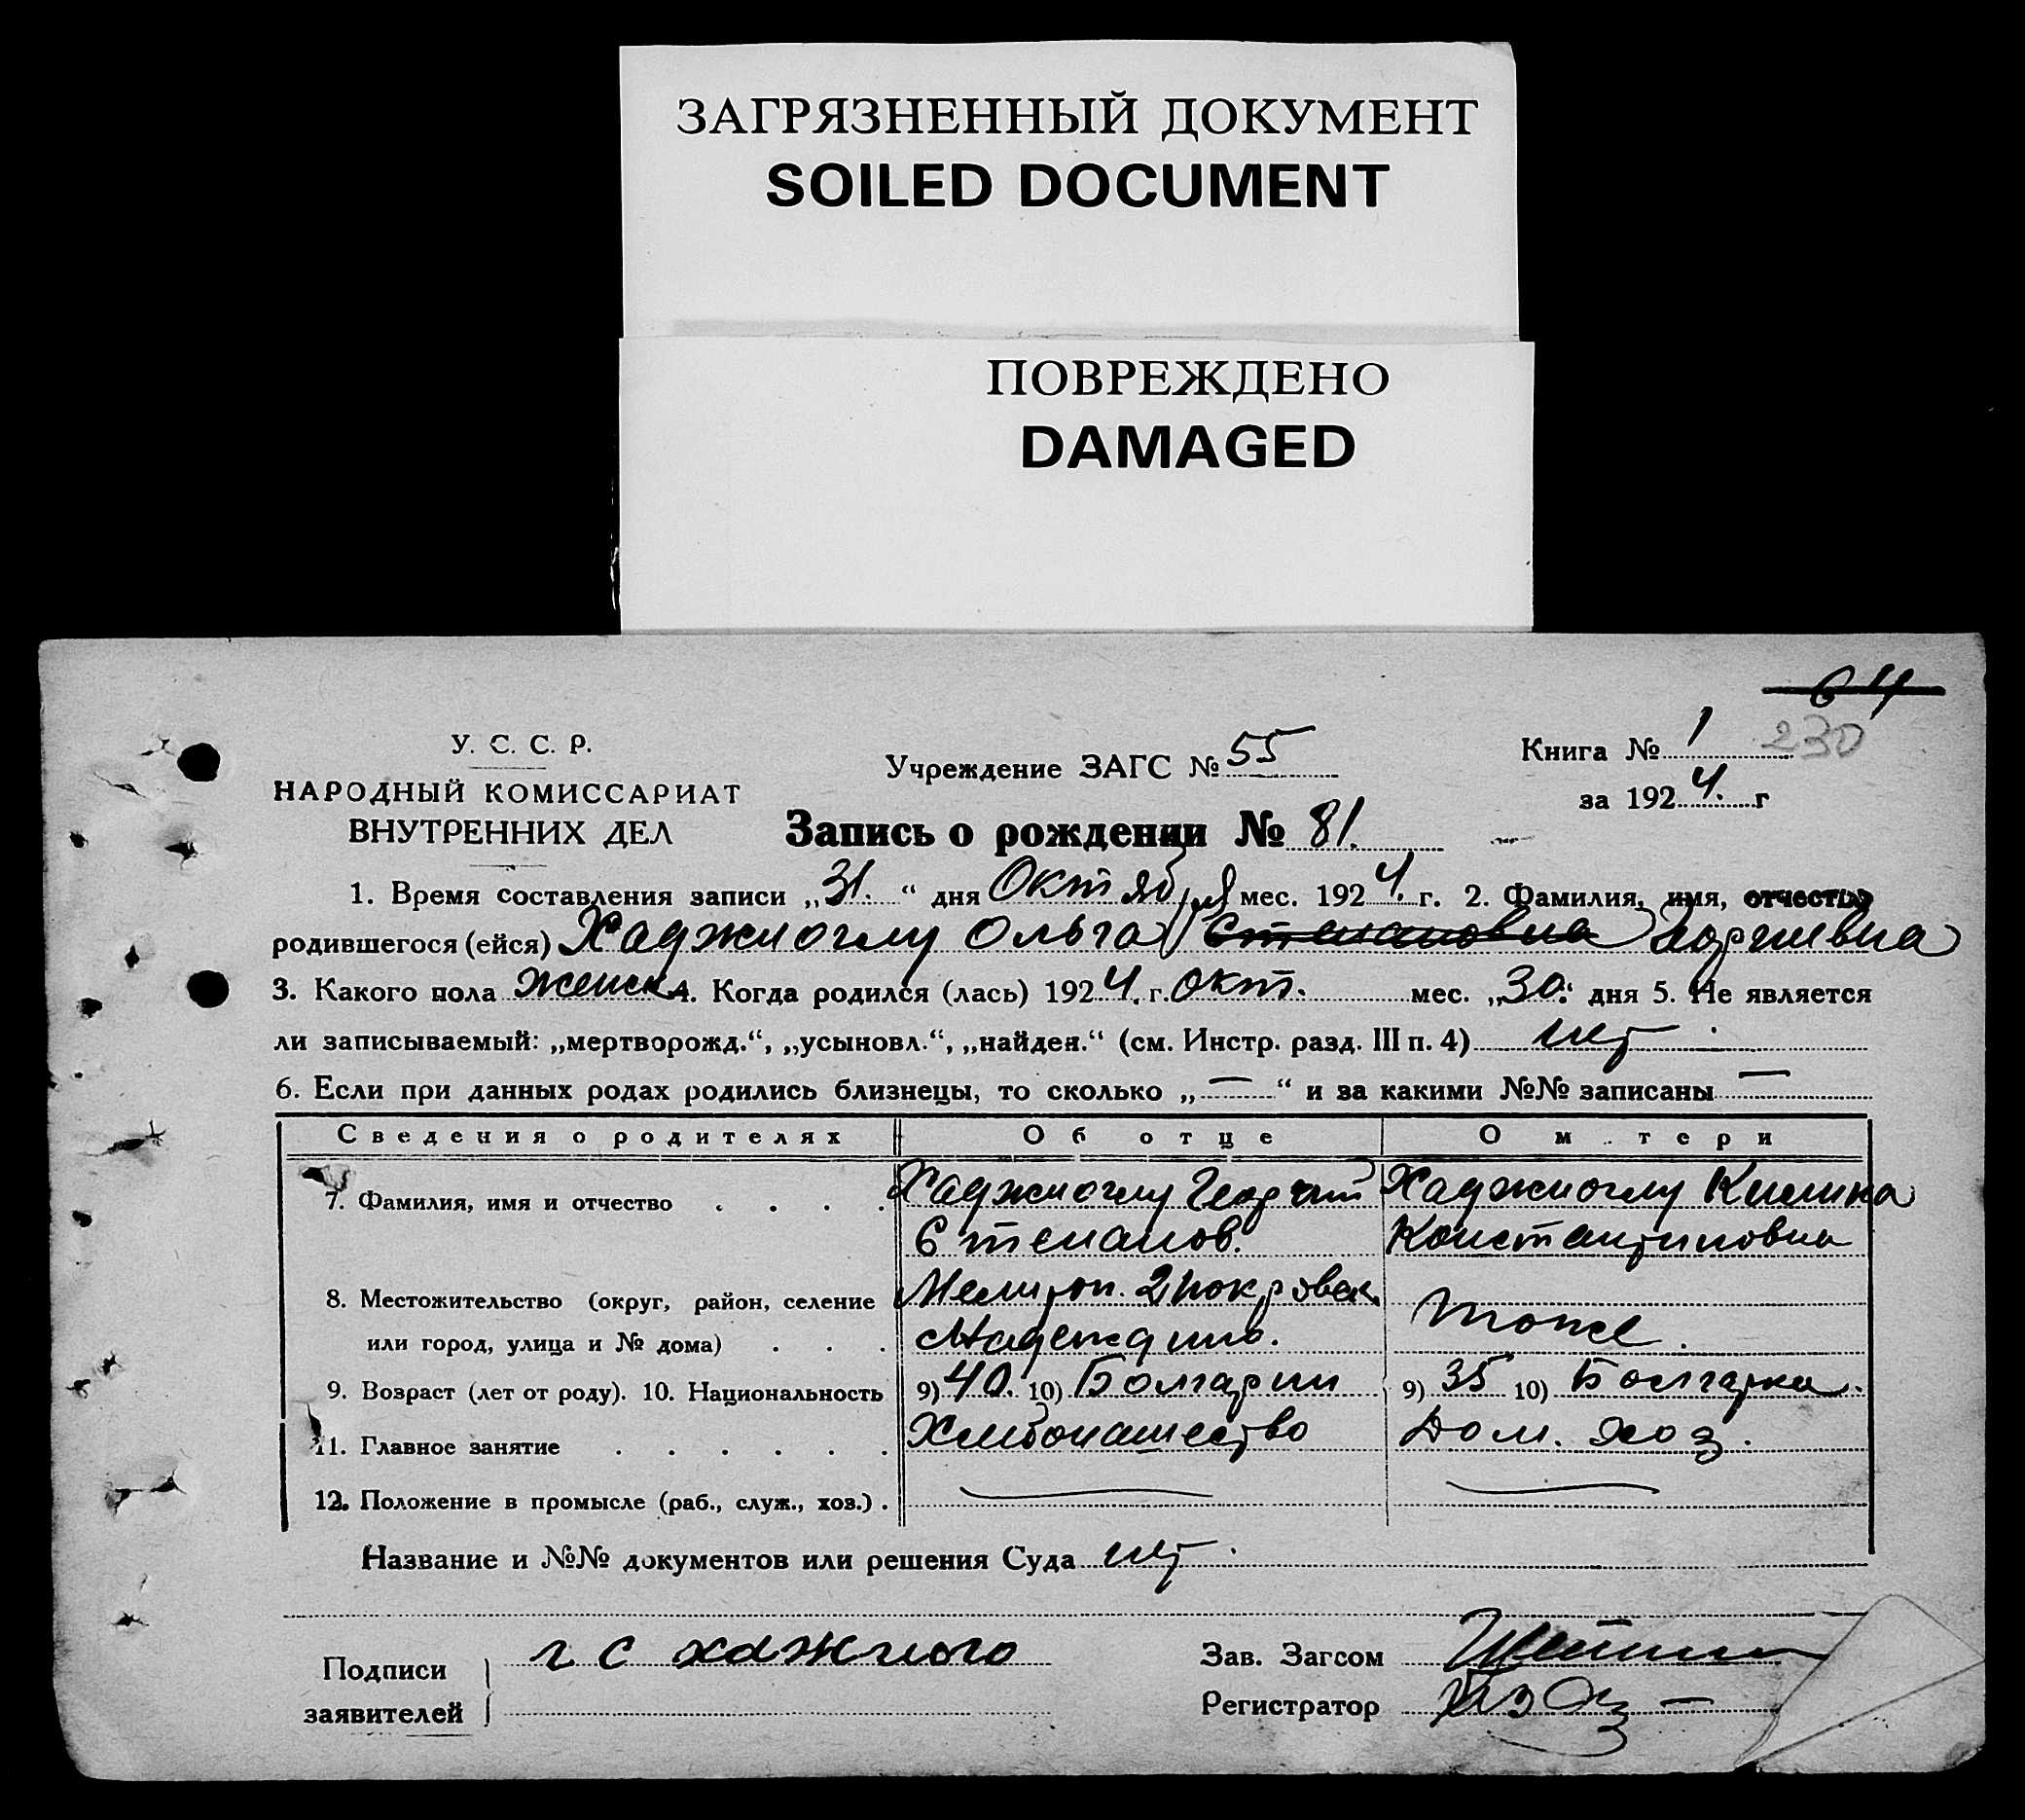 ЗАГРЯЗНЕННЫЙ ДОКУМЕНТ
SOILED DOCUMENT
ПОВРЕЖДЕНО
DAMAGED
64
У. С. С. Р.
НАРОДНЫЙ КОМИССАРИАТ
ВНУТРЕННИХ ДЕЛ
Учреждение ЗАГС № 55
Книга № 1 230
за 1924. г
Запись о рождении № 81.
1. Время составления записи „31.“ дня Октября мес. 1924. г. 2. Фамилия, имя, отчество
родившегося (ейся) Хаджиоглу Ольга Степановна
3. Какого пола женск 4. Когда родился (лась) 1924. г. окт. мес. „30.“ дня 5. Не является
ли записываемый: „мертворожд.“, „усыновл.“, „найден.“ (см. Инстр. разд. III п. 4) нет
6. Если при данных родах родились близнецы, то сколько „—“ и за какими №№ записаны —
Сведения о родителях Об отце О м тери
7. Фамилия, имя и отчество . . . . Хаджиоглу Георгий Хаджиоглу
Степанов. Константиновна
8. Местожительство (округ, район, селение Мелитоп. 2 покровск. тоже.
или город, улица и № дома) . . . Надеждино.
9. Возраст (лет от роду). 10. Национальность 9) 40. 10) Болгарин 9) 35 10) Болгарка.
11. Главное занятие . . . . . . Хлебопашество Дом. хоз.
12. Положение в промысле (раб., служ., хоз.) . — —
Название и №№ документов или решения Суда нет.
Подписи заявителей г с хажиого
Зав. Загсом
Регистратор